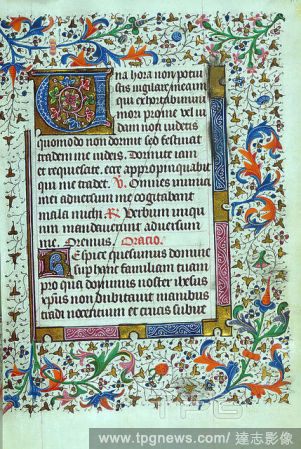 Una hora non potui
stis vigilare mecum
qui exhortabimini
mori pro me vel iu
dam non videtis
quomodo non dormit sed festinat
tradere me iudeis. Dormite iam
et requiescite. ecce appropinquabit
qui me tradet. V. Omnes inimici
mei adversum me cogitabant
mala michi. R. Verbum iniqu
um mandaverunt adversum
me. Oremus. Oracio.
Respice quesumus domine
super hanc familiam tuam
pro qua dominus noster ihesus
xpus non dubitavit manibus
tradi nocentium et crucis subire
TPG
www.tpgnews.com/ 達志影像